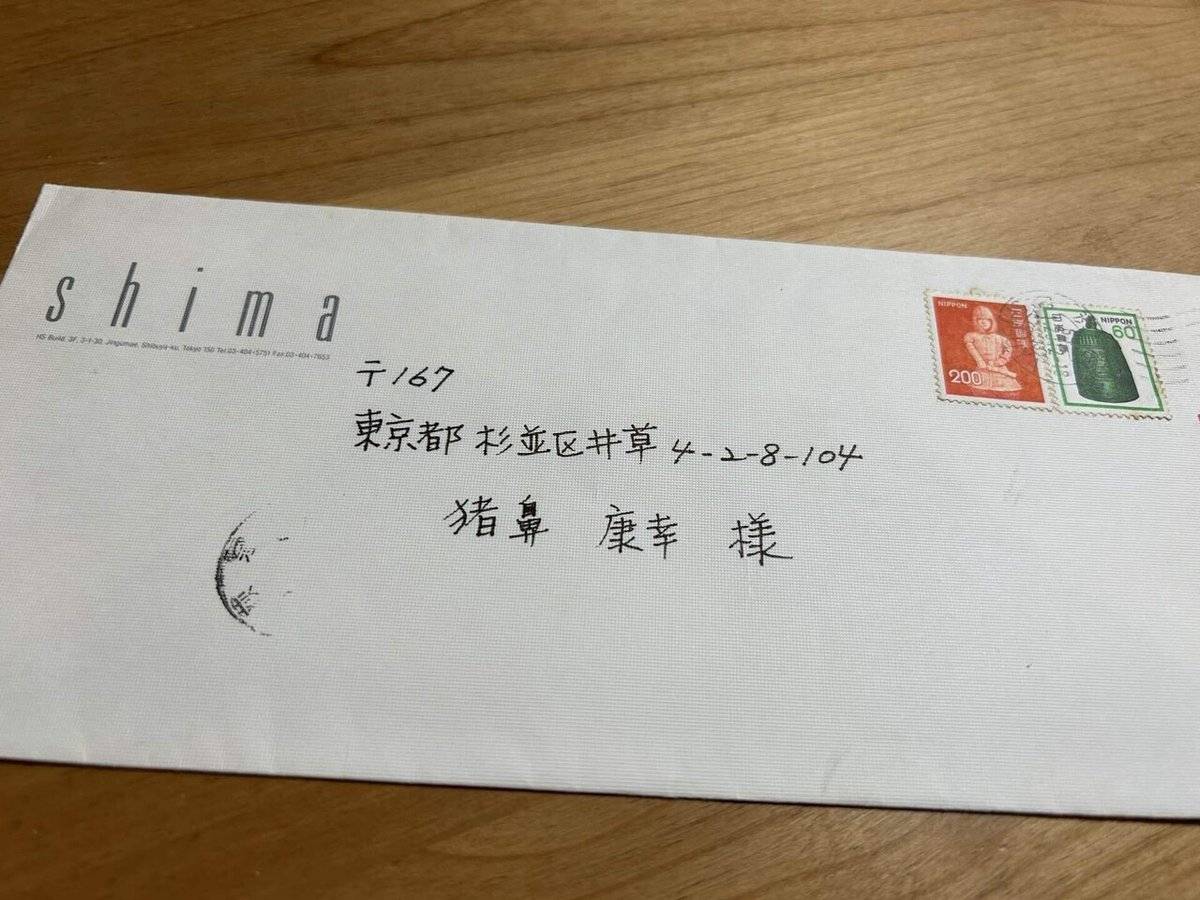 shima
HS Build. 3F, 3-1-30, Jingumae, Shibuya-ku, Tokyo 150 Tel.03-404-5751 Fax.03-404-7853
NIPPON
日本郵便
200
NIPPON
60
日本郵便
〒167
東京都 杉並区井草 4-2-8-104
猪鼻 康幸 様